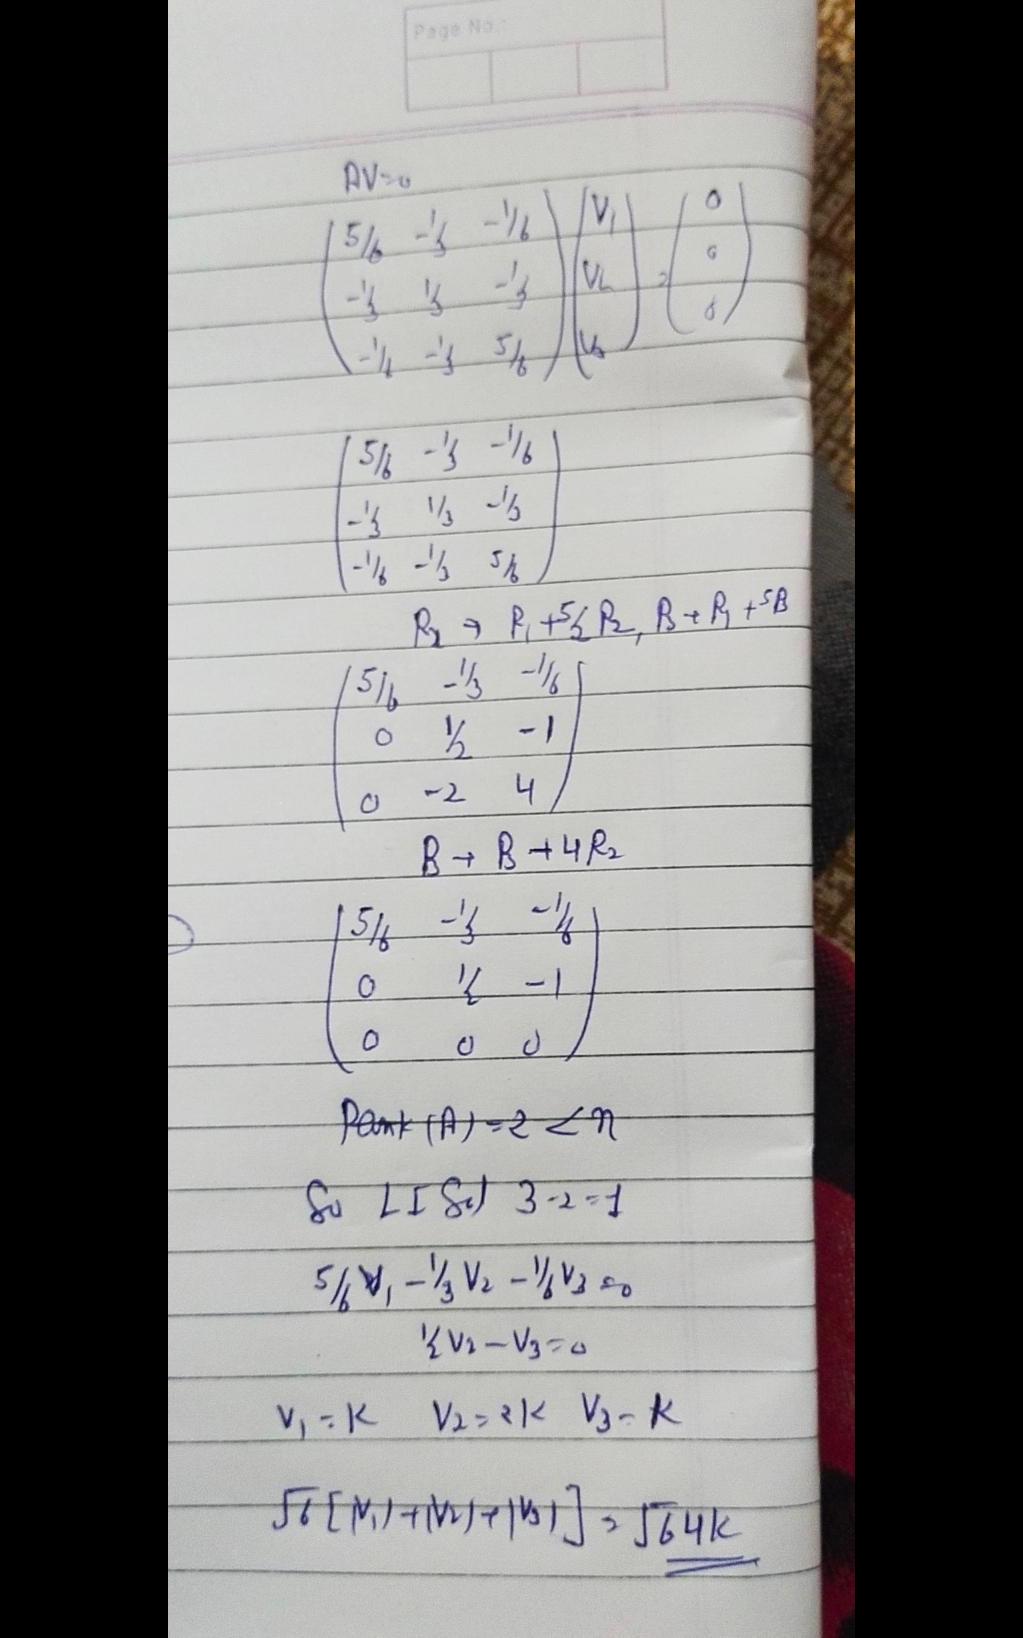 Page No.:
AV=0
5/6 -1/3 -1/6 V1 0
-1/3 1/3 -1/3 V2 = 0
-1/6 -1/3 5/6 V3 0
5/6 -1/3 -1/6
-1/3 1/3 -1/3
-1/6 -1/3 5/6
R2 → R1 + 5/2 R2, R3 → R1 + 5R3
5/6 -1/3 -1/6
0 1/2 -1
0 -2 4
R3 → R3 + 4R2
5/6 -1/3 -1/6
0 1/2 -1
0 0 0
Rank (A) = 2 < n
So LI Sol 3-2=1
5/6 V1 - 1/3 V2 - 1/6 V3 = 0
1/2 V2 - V3 = 0
V1 = K V2 = 2K V3 = K
√6 [|V1| + |V2| + |V3|] = √6 4K